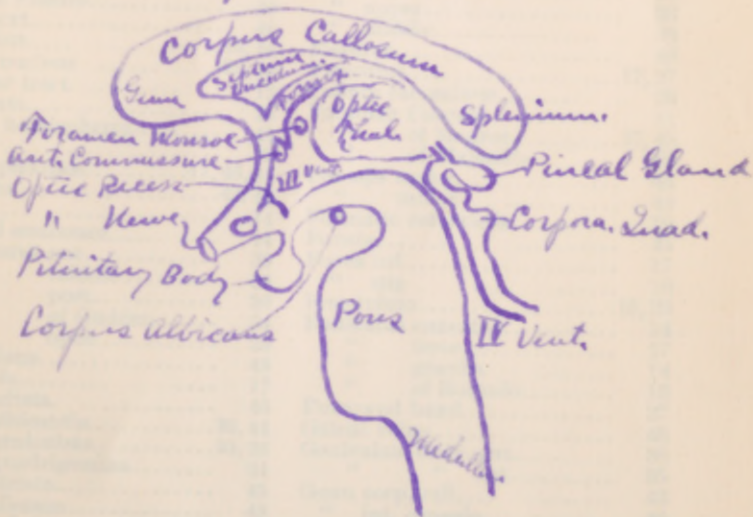 Corpus Callosum
Genu
Septum
Lucidum.
Fornix
Optic
Thal.
Splenium.
Foramen Monroe
Ant. Commissure
III Vent.
Optic Recess
" Nerve
Pineal Gland
Corpora. Quad.
Pituitary Body
Corpus Albicans
Pons
IV Vent.
Medulla.